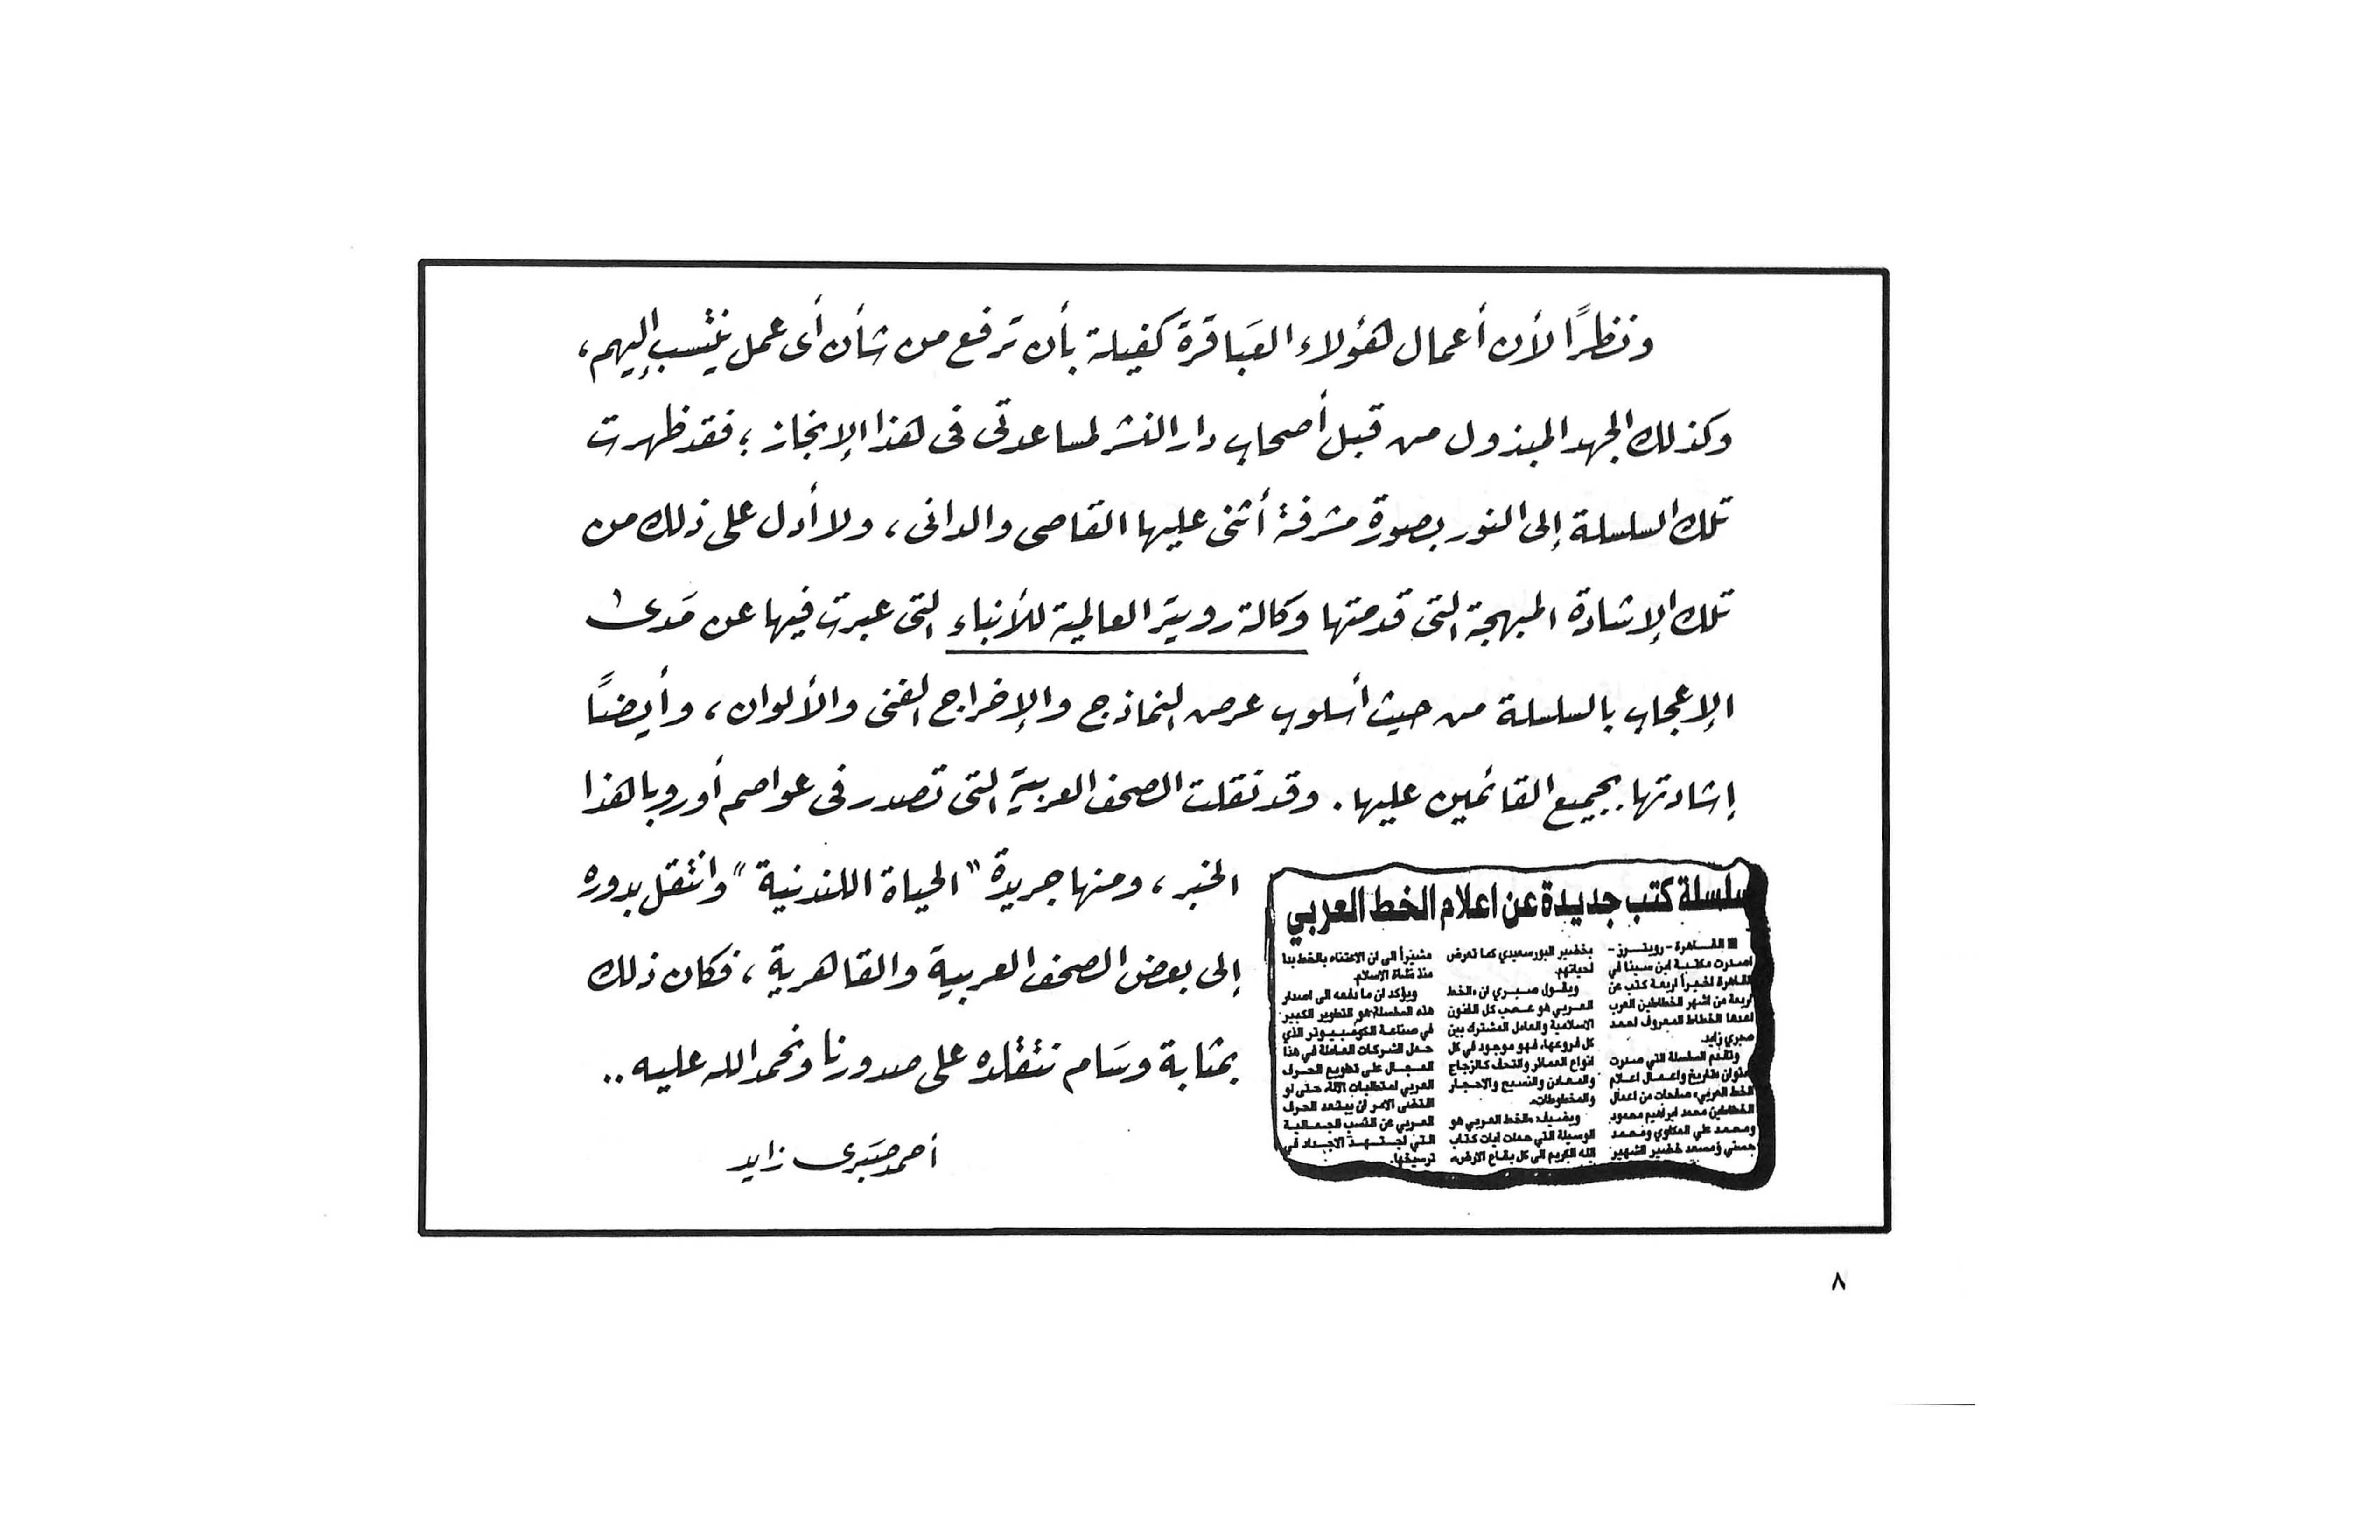 ونظرًا لأن أعمال هؤلاء العَباقرَة كفيلة بأن تَرفع من شأن أى عمل ينتسب إليهم،
وكذلك الجهد المبذول من قبل أصحاب دار النشر لمساعدتى فى هذا الإنجاز؛ فقد ظهرت
تلك السلسلة إلى النور بصورة مشرفة أثنى عليها القاصى والدانى، ولا أدل على ذلك من
تلك الإشادة المبهجة التى قدمتها وكالة رويتر العالمية للأنباء التى عبرت فيها عن مَدى
الإعجاب بالسلسلة من حيث أسلوب عرض النماذج والإخراج الفنى والألوان، وأيضًا
إشادتها بجميع القائمين عليها. وقد نقلت الصحف العربية التى تصدر فى عواصم أوروبا هذا
الخبر، ومنها جريدة "الحياة اللندنية" وانتقل بدوره
إلى بعض الصحف العربية والقاهرية، فكان ذلك
بمثابة وسَام نتقلده على صدورنا ونحمد الله عليه..
أحمد صَبرى زايد
سلسلة كتب جديدة عن اعلام الخط العربي
■ القاهرة - رويترز -
اصدرت مكتبة ابن سينا في
القاهرة اخيراً اربعة كتب عن
اربعة من اشهر الخطاطين العرب
اعدها الخطاط المعروف احمد
صبري زايد.
وتقدم السلسلة التي صدرت
بعنوان «تاريخ واعمال اعلام
الخط العربي» صفحات من اعمال
الخطاطين محمد ابراهيم محمود
ومحمد علي المكاوي ومحمد
حسني ومسعد خضير الشهير
بخضير البورسعيدي كما تعرض
لحياتهم.
ويقول صبري ان «الخط
العربي هو عصب كل الفنون
الاسلامية والعامل المشترك بين
كل فروعها، فهو موجود في كل
انواع العمائر والتحف كالزجاج
والمعادن والنسيج والاحجار
والمخطوطات».
ويضيف: «الخط العربي هو
الوسيلة التي حملت آيات كتاب
الله الكريم الى كل بقاع الارض»،
مشيراً الى ان الاعتناء بالخط بدأ
منذ نشأة الاسلام.
ويؤكد ان ما دفعه الى اصدار
هذه السلسلة هو التطوير الكبير
في صناعة الكومبيوتر الذي
حمل الشركات العاملة في هذا
المجال على تطويع الحرف
العربي لمتطلبات الآلة، حتى لو
اقتضى الامر ان يبتعد الحرف
العربي عن النسب الجمالية
التي اجتهد الاجداد في
ترسيخها.
٨